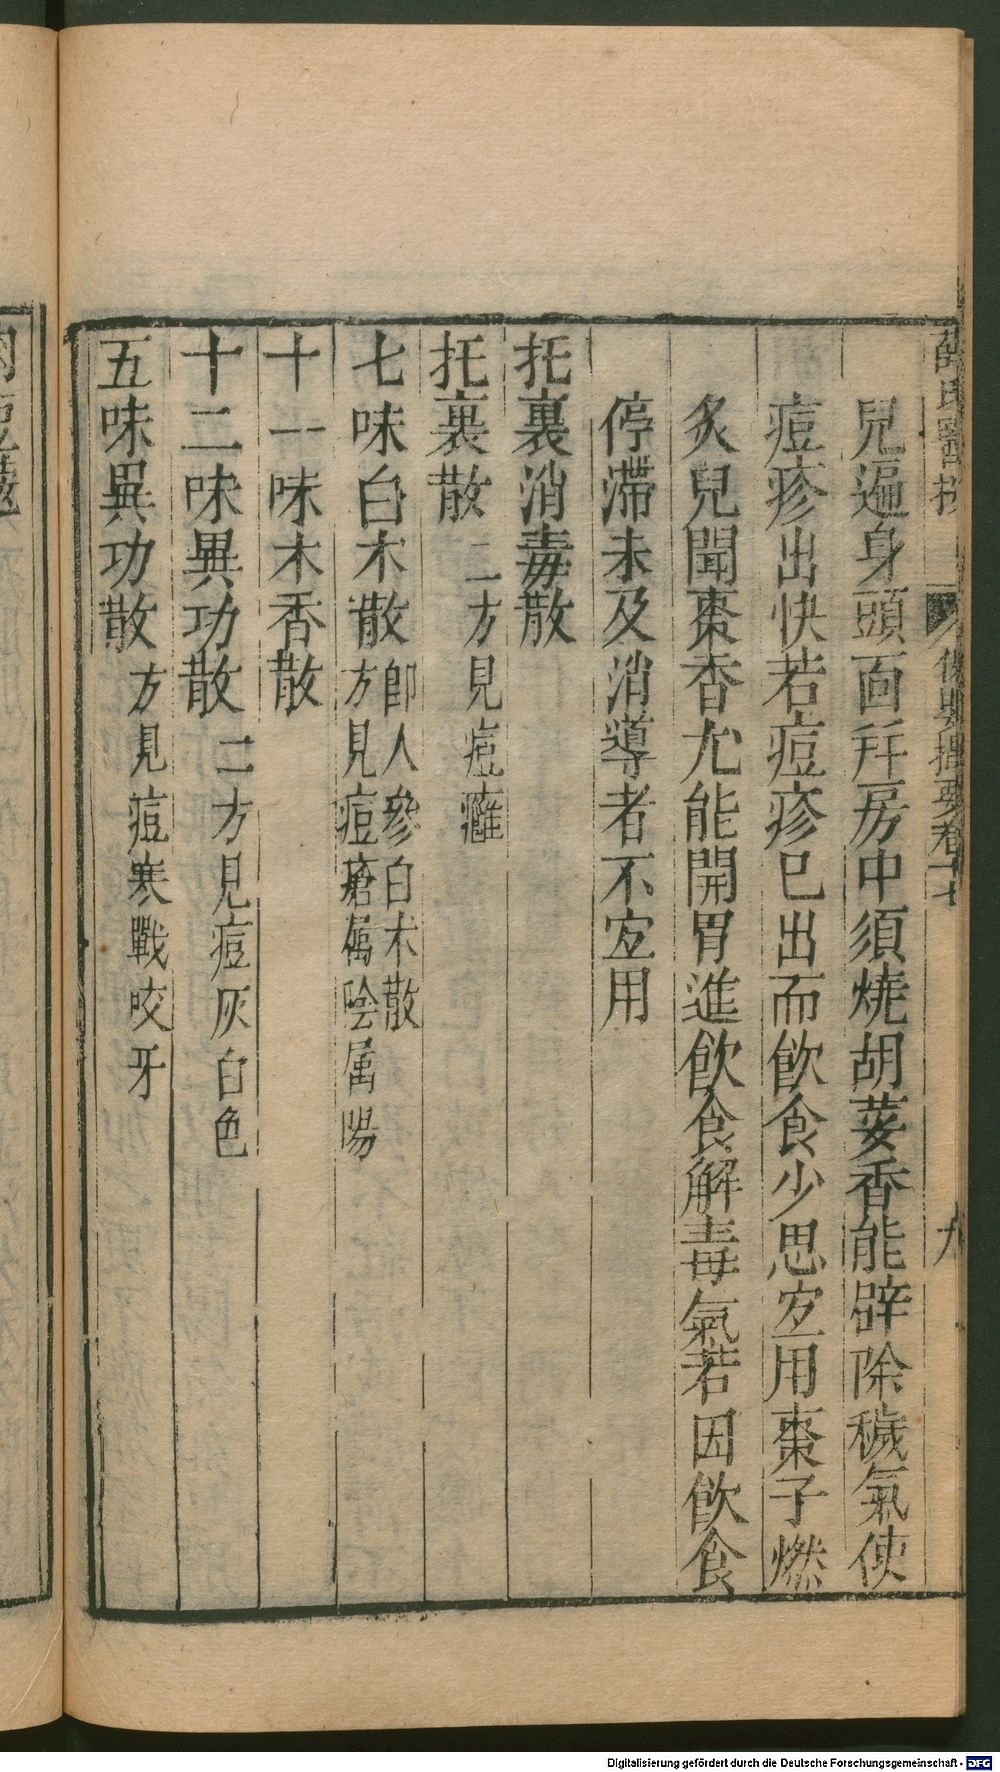 兒遍身頭面幷房中須燒胡荽香能辟除穢氣使
痘疹出快若痘疹已出而飲食少思宐用棗子燃
炙兒聞棗香尤能開胃進飲食解毒氣若因飲食
停滯未及消導者不宐用
托裏消毒散
托裏散二方見痘癰
七味白术散卽人參白术散
方見痘瘡屬陰屬陽
十一味木香散
十二味異功散二方見痘灰白色
五味異功散方見痘寒戰咬牙
保嬰撮要卷十七
九
Digitalisierung gefördert durch die Deutsche Forschungsgemeinschaft - DFG